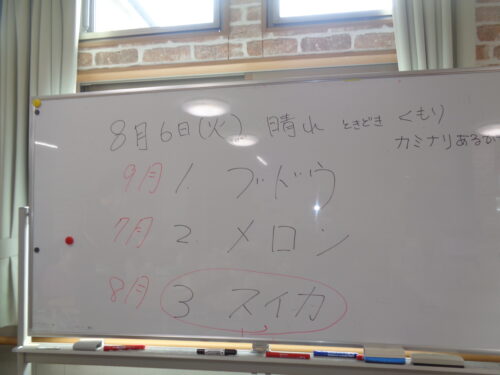 8月6日(火) 晴れ ときどき くもり
カミナリあるかも
9月 1. ブドウ
7月 2. メロン
8月 3 スイカ